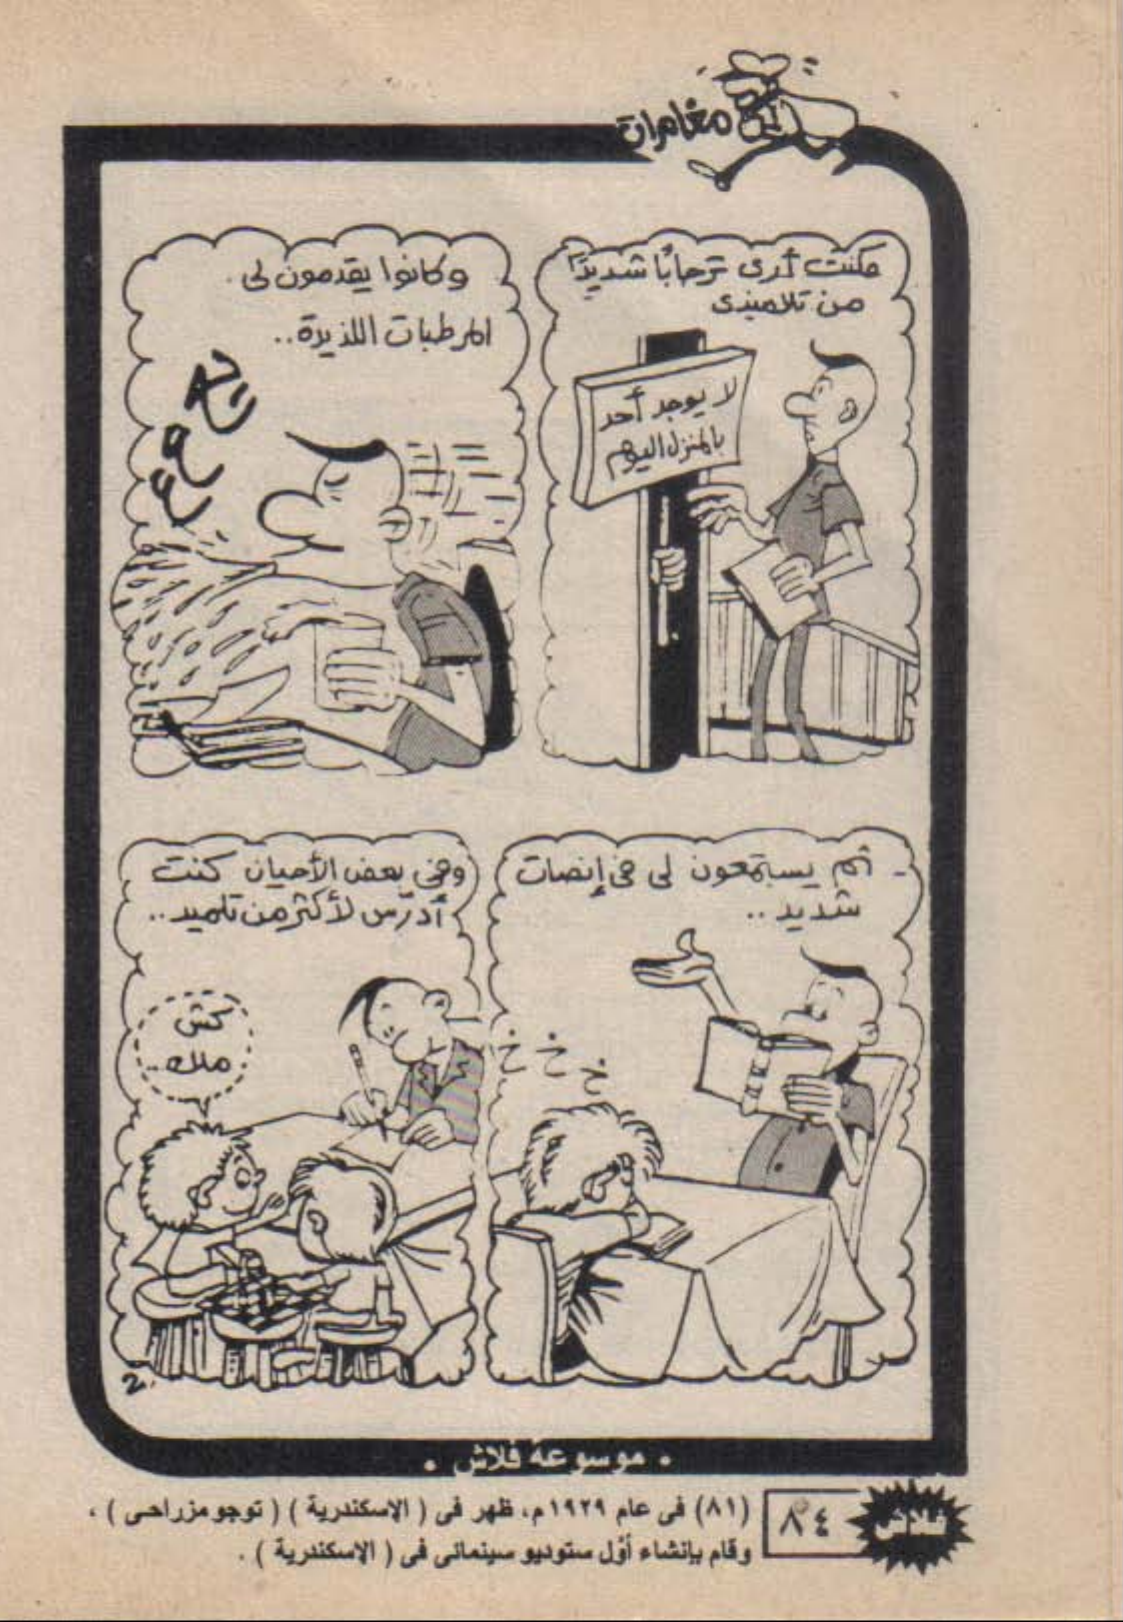 مغامرات
فكنت أرى ترحابًا شديدًا
من تلاميذى
لا يوجد أحد
بالمنزل اليوم
وكانوا يقدمون لى
المرطبات اللذيذة..
ثم يستمعون لى فى إنصات
شديد ..
خ خ خ
وفى بعض الأحيان كنت
أدرّس لأكثر من تلميذ..
كش
ملك
2
• موسوعة فلاش •
فلاش
٨٤
(٨١) فى عام ١٩٢٩ م، ظهر فى ( الإسكندرية ) ( توجو مزراحى ) ،
وقام بإنشاء أوّل ستوديو سينمائى فى ( الإسكندرية ) .